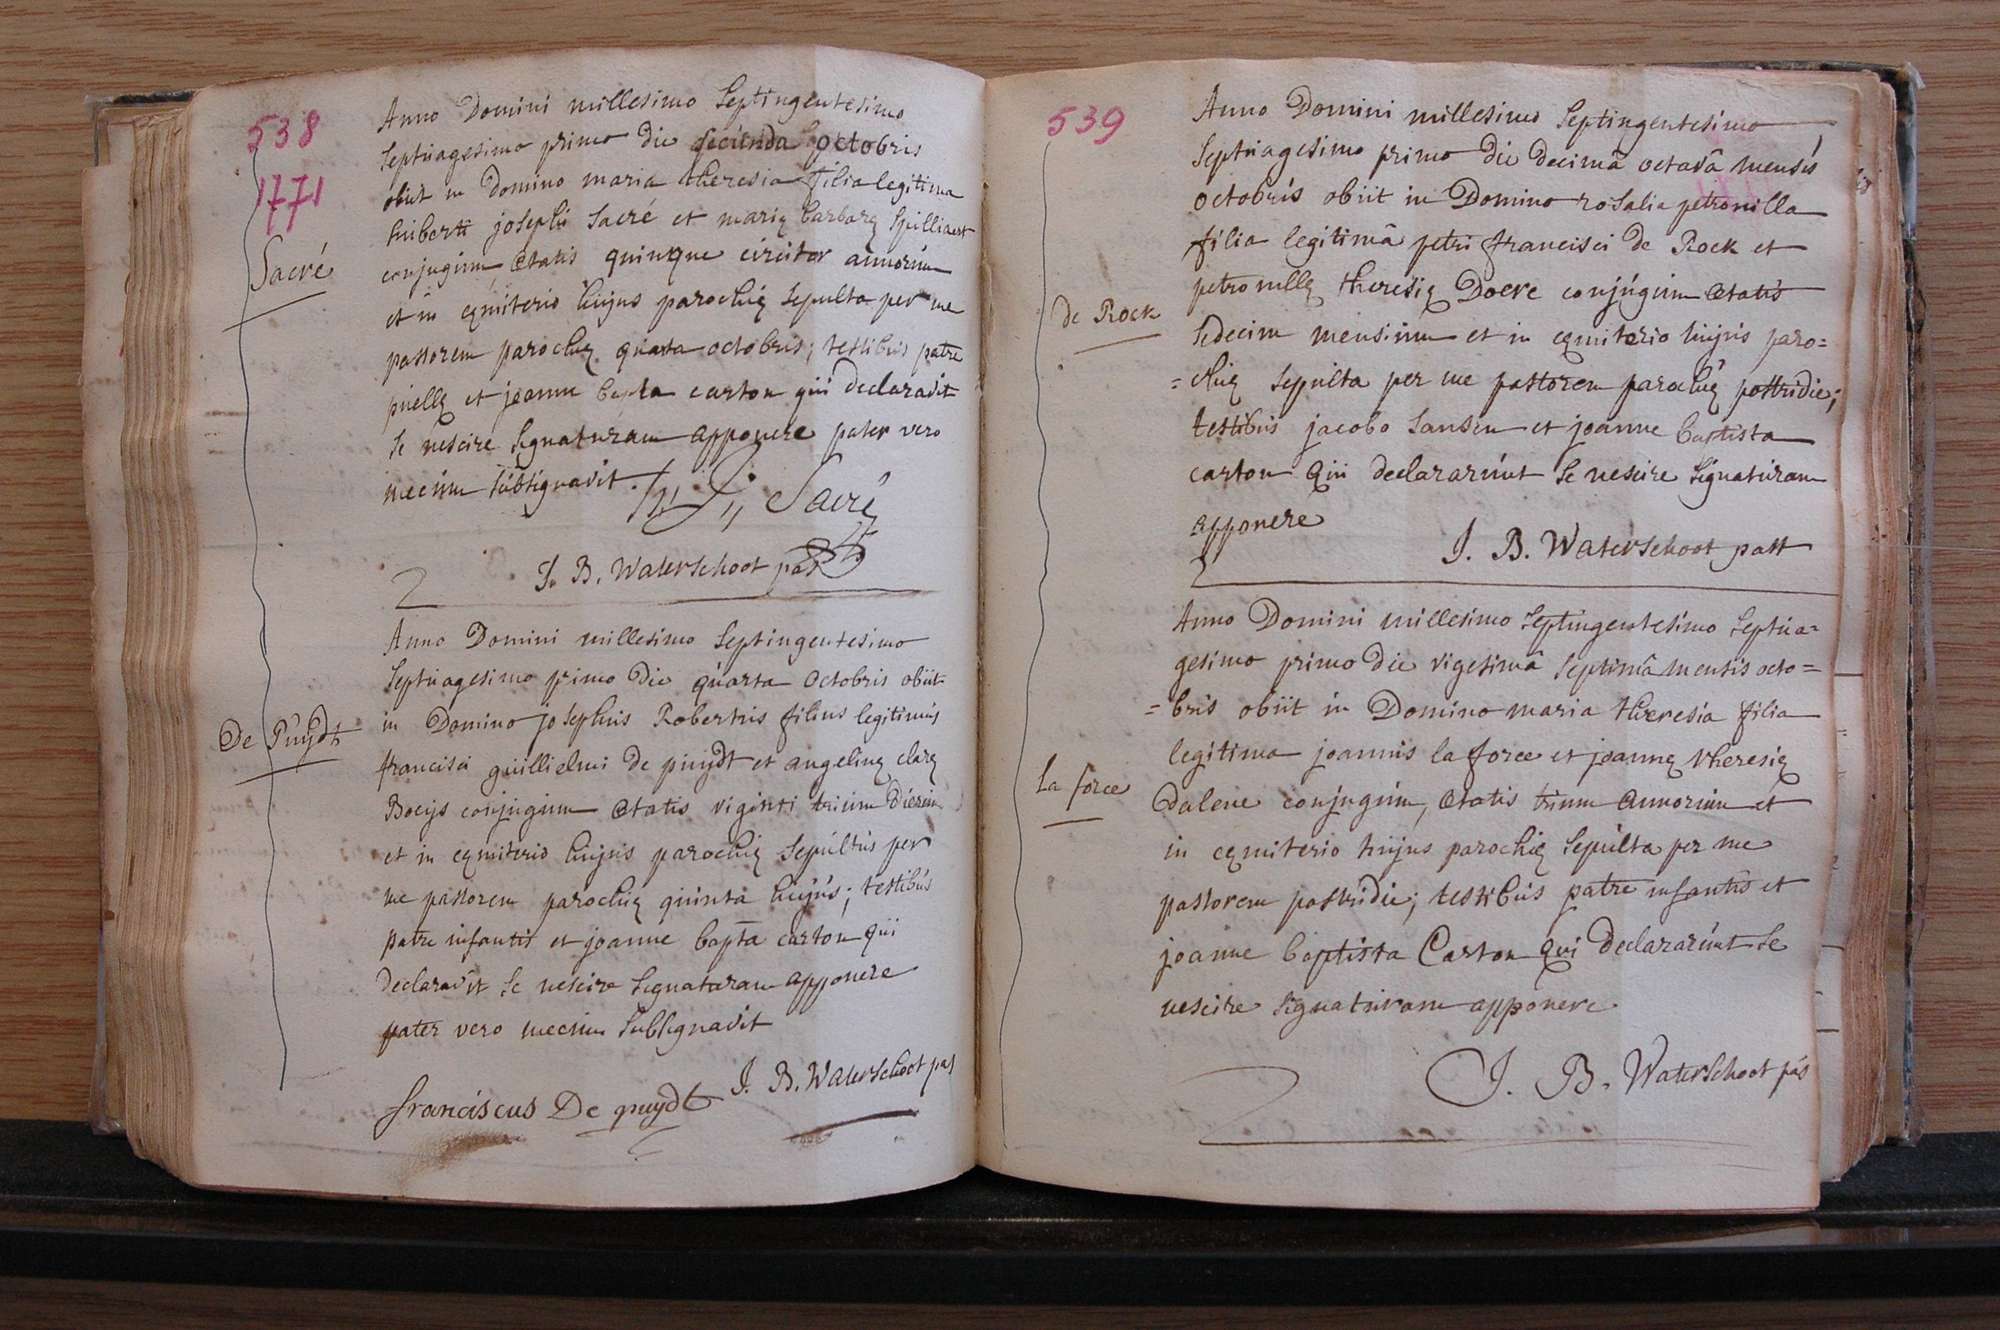 538
1771
Anno Domini millesimo Septingentesimo
Septuagesimo primo die secunda octobris
obiit in Domino maria theresia filia legitima
huberti josephi Sacré et marię barbarę Spilliaert
conjugum ętatis quinque circiter annorum
et in cęmiterio hujus parochię Sepulta per me
pastorem parochię quarta octobris; testibus patre
puellę et joanne bapta carton qui declaravit
se nescire Signaturam apponere pater vero
mecum subsignavit.
Sacré
Sacré
J. B. Waterschoot past
Anno Domini millesimo Septingentesimo
Septuagesimo primo die quarta octobris obiit
in Domino josephus Robertus filius legitimus
francisci guillielmi de puÿdt et angelinę clarę
Bocÿs conjugum ętatis viginti trium dierum
et in cęmiterio hujus parochię Sepultus per
me pastorem parochię quinta hujus; testibus
patre infantis et joanne bapta carton qui
declaravit se nescire Signaturam apponere
pater vero mecum Subsignavit
De Puÿdt
franciscus De puydt
J. B. Waterschoot pas
539
Anno Domini millesimo Septingentesimo
Septuagesimo primo die decimâ octavâ mensis
octobris obiit in Domino rosalia petronilla
filia legitimâ petri francisci de Rock et
petronillę theresię Doere conjugum ętatis
sedecim mensium et in cęmiterio hujus paro=
=chię sepulta per me pastorem parochię postridie;
testibus jacobo Sansen et joanne baptista
carton qui declararunt se nescire Signaturam
apponere
de Rock
J. B. Waterschoot past
Anno Domini millesimo Septingentesimo Septua=
gesimo primo die vigesimâ Septimâ mensis octo=
=bris obiit in Domino maria theresia filia
legitima joannis la force et joannę theresię
Dalene conjugum, ętatis trium annorum et
in cęmiterio hujus parochię Sepulta per me
pastorem postridie; testibus patre infantis et
joanne baptista Carton qui declararunt se
nescire signaturam apponere
La force
J. B. Waterschoot pas